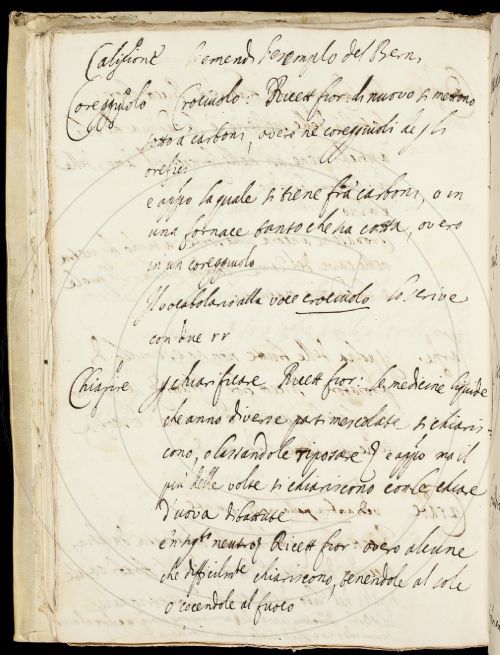 Calisione si emendi l'esemplo del Bern.
Coreggiuolo Crociuolo: Ricett fior: di nuovo si mettono
sotto a' carboni, overo ne' coreggiuoli degli
orefici
e appo la quale si tiene frà carboni, o in
una fornace tanto che sia cotta, overo
in un coreggiuolo
Il vocabolario alla voce crociuolo lo scrive
con due rr
Chiarire p chiarificare Ricett fior: le medicine liquide
che anno diverse parti mescolate si chiaris-
cono, o lassandole riposare e appo ma il
più delle volte si chiariscono con le chiare
d'uova dibattute
e in sigto neutro Ricett fior: overo alcune
che difficilmte chiariscono, tenendole al sole
o cocendole al fuoco